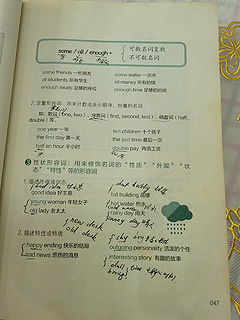 some / all / enough +
可数名词复数
不可数名词
some friends 一些朋友
some water 一点水
all students 所有学生
all money 所有的钱
enough seats 足够的座位
enough time 足够的时间
2. 定量形容词，用来计数或表示顺序、份量的名词
如：数词 (one, two)、序数词 (first, second, last)、倍数词 (half,
double) 等。
one year 一年
ten children 十个孩子
the first day 第一天
the last time 最后一次
half an hour 半小时
double pay 两倍工资
3 性状形容词：用来修饰名词的 "性质" "外观" "状
态" "特性" 等的形容词
1. 描述外观或状态
good idea 好主意
tall building 高楼
young woman 年轻女子
hot water 热水
old lady 老太太
rainy day 雨天
new desk
old desk
2. 描述特性或特质
happy ending 快乐的结局
outgoing personality 活泼的个性
sad news 悲伤的消息
interesting story 有趣的故事
047